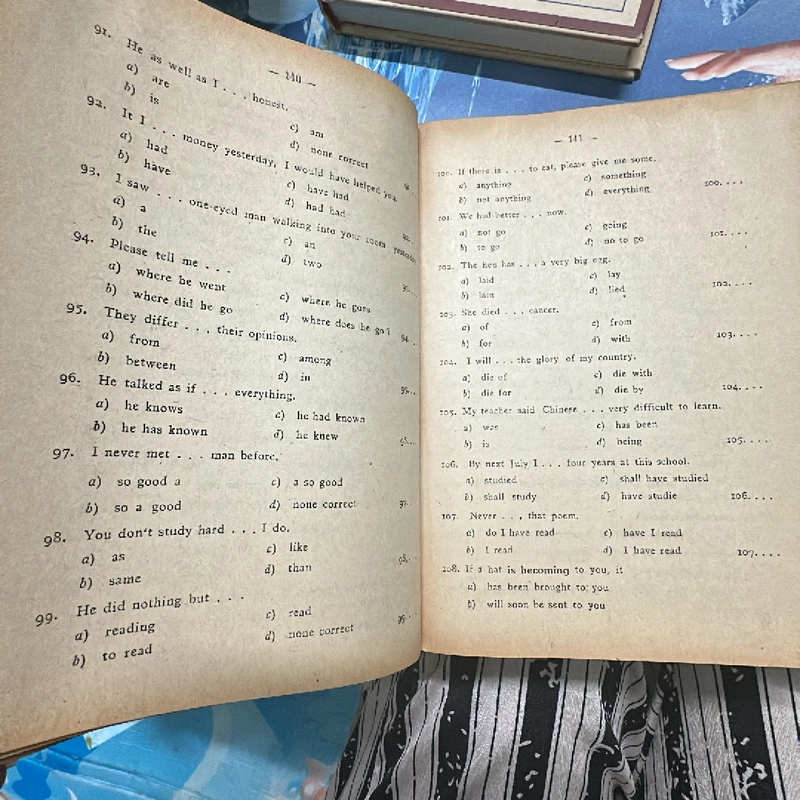 — 140 —
91. He as well as I . . . honest.
a) are c) am
b) is d) none correct
92. If I . . . money yesterday, I would have helped you.
a) had c) have had
b) have d) had had
93. I saw . . . one-eyed man walking into your room yesterday
a) a c) an
b) the d) two
94. Please tell me . . .
a) where he went c) where he goes
b) where did he go d) where does he go
95. They differ . . . their opinions.
a) from c) among
b) between d) in
96. He talked as if . . . everything.
a) he knows c) he had known
b) he has known d) he knew
97. I never met . . . man before.
a) so good a c) a so good
b) so a good d) none correct
98. You don't study hard . . . I do.
a) as c) like
b) same d) than
99. He did nothing but . . .
a) reading c) read
b) to read d) none correct
— 141 —
100. If there is . . . to eat, please give me some.
a) anything c) something
b) not anything d) everything 100. . . .
101. We had better . . . now.
a) not go c) going
b) to go d) no to go 101. . . .
102. The hen has . . . a very big egg.
a) laid c) lay
b) lain d) lied 102. . . .
103. She died . . . cancer.
a) of c) from
b) for d) with 103. . . .
104. I will . . . the glory of my country.
a) die of c) die with
b) die for d) die by 104. . . .
105. My teacher said Chinese . . . very difficult to learn.
a) was c) has been
b) is d) being 105. . . .
106. By next July I . . . four years at this school.
a) studied c) shall have studied
b) shall study d) have studie 106. . . .
107. Never . . . that poem.
a) do I have read c) have I read
b) I read d) I have read 107. . . .
108. If a hat is becoming to you, it
a) has been brought to you
b) will soon be sent to you